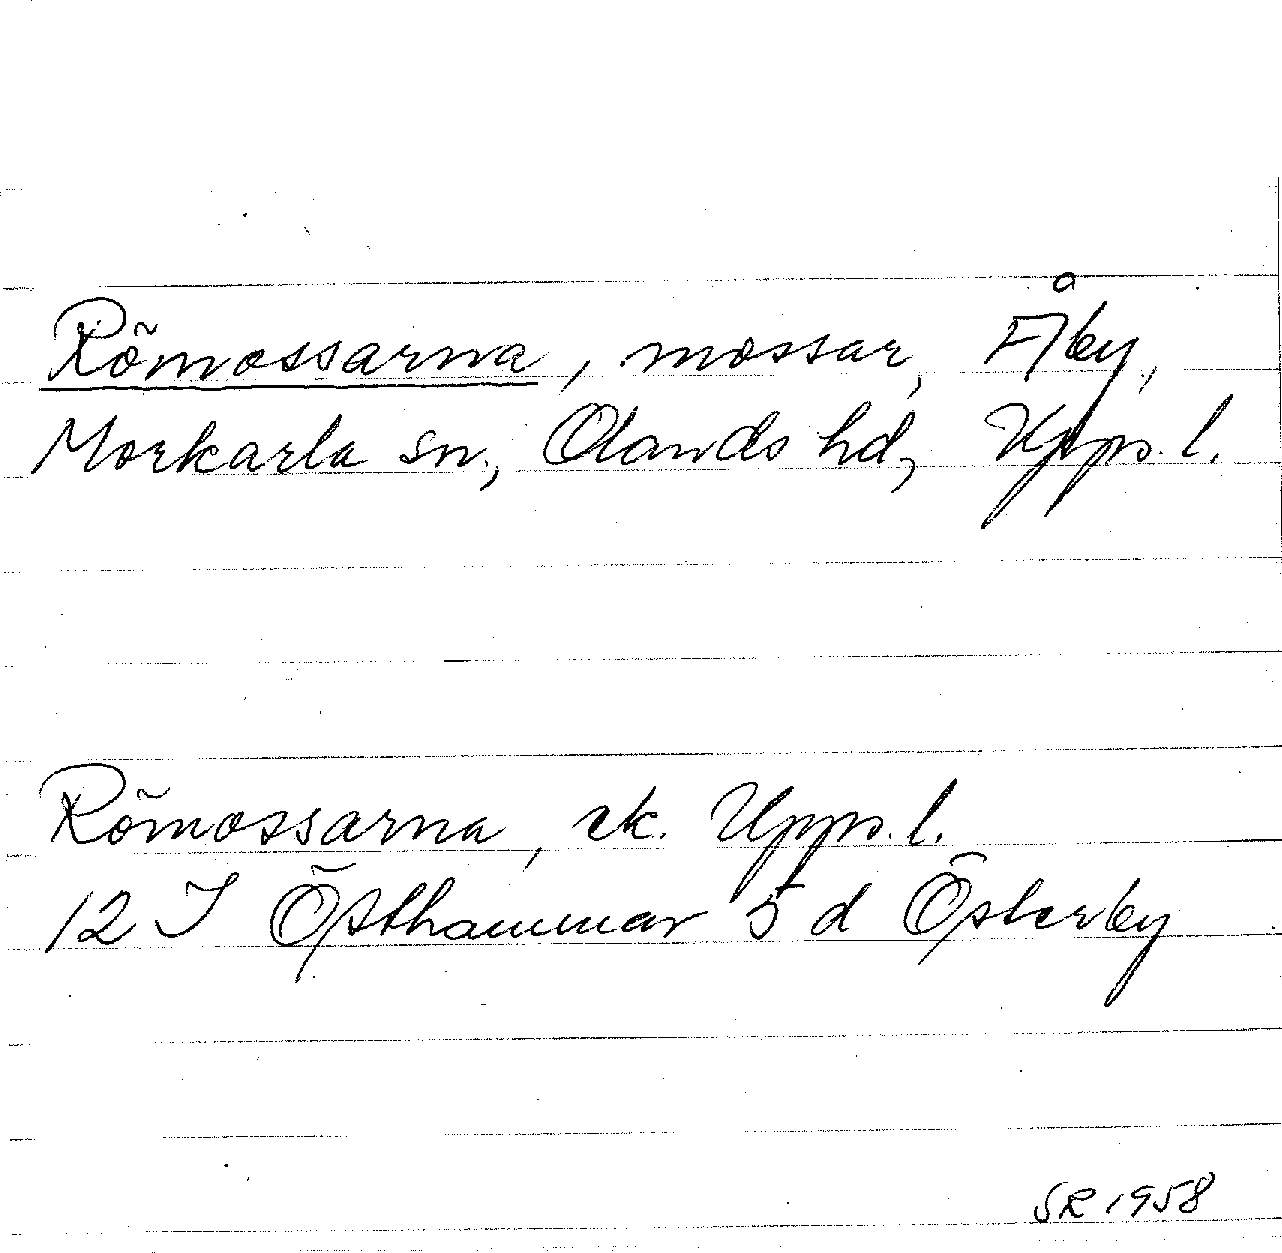 Römossarna, mossar, Åby,
Morkarla sn., Olands hd, Upps. l.
Römossarna, ek. Upps. l.
12 I Östhammar 5 d Österby
SR 1958